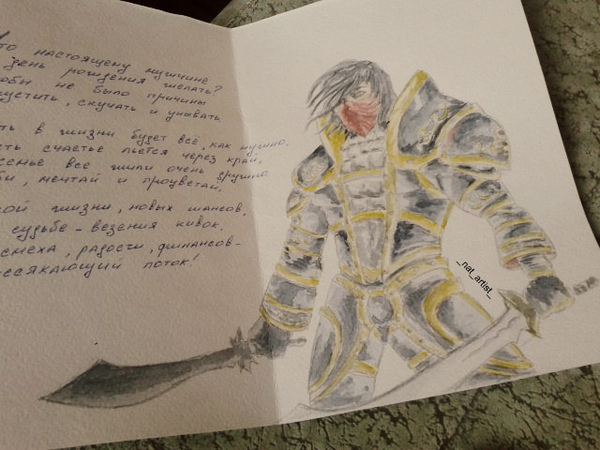 то настоящему мужчине
день рождения желать?
обы не было причины
устить, скучать и унывать
ть в жизни будет всё, как нужно,
сть счастье льётся через край,
семье все жили очень дружно
би, мечтай и процветай,
ой жизни, новых шансов,
судьбе - везения кивок,
смеха, радости, финансов -
ссякающий поток!
_nat_artist_